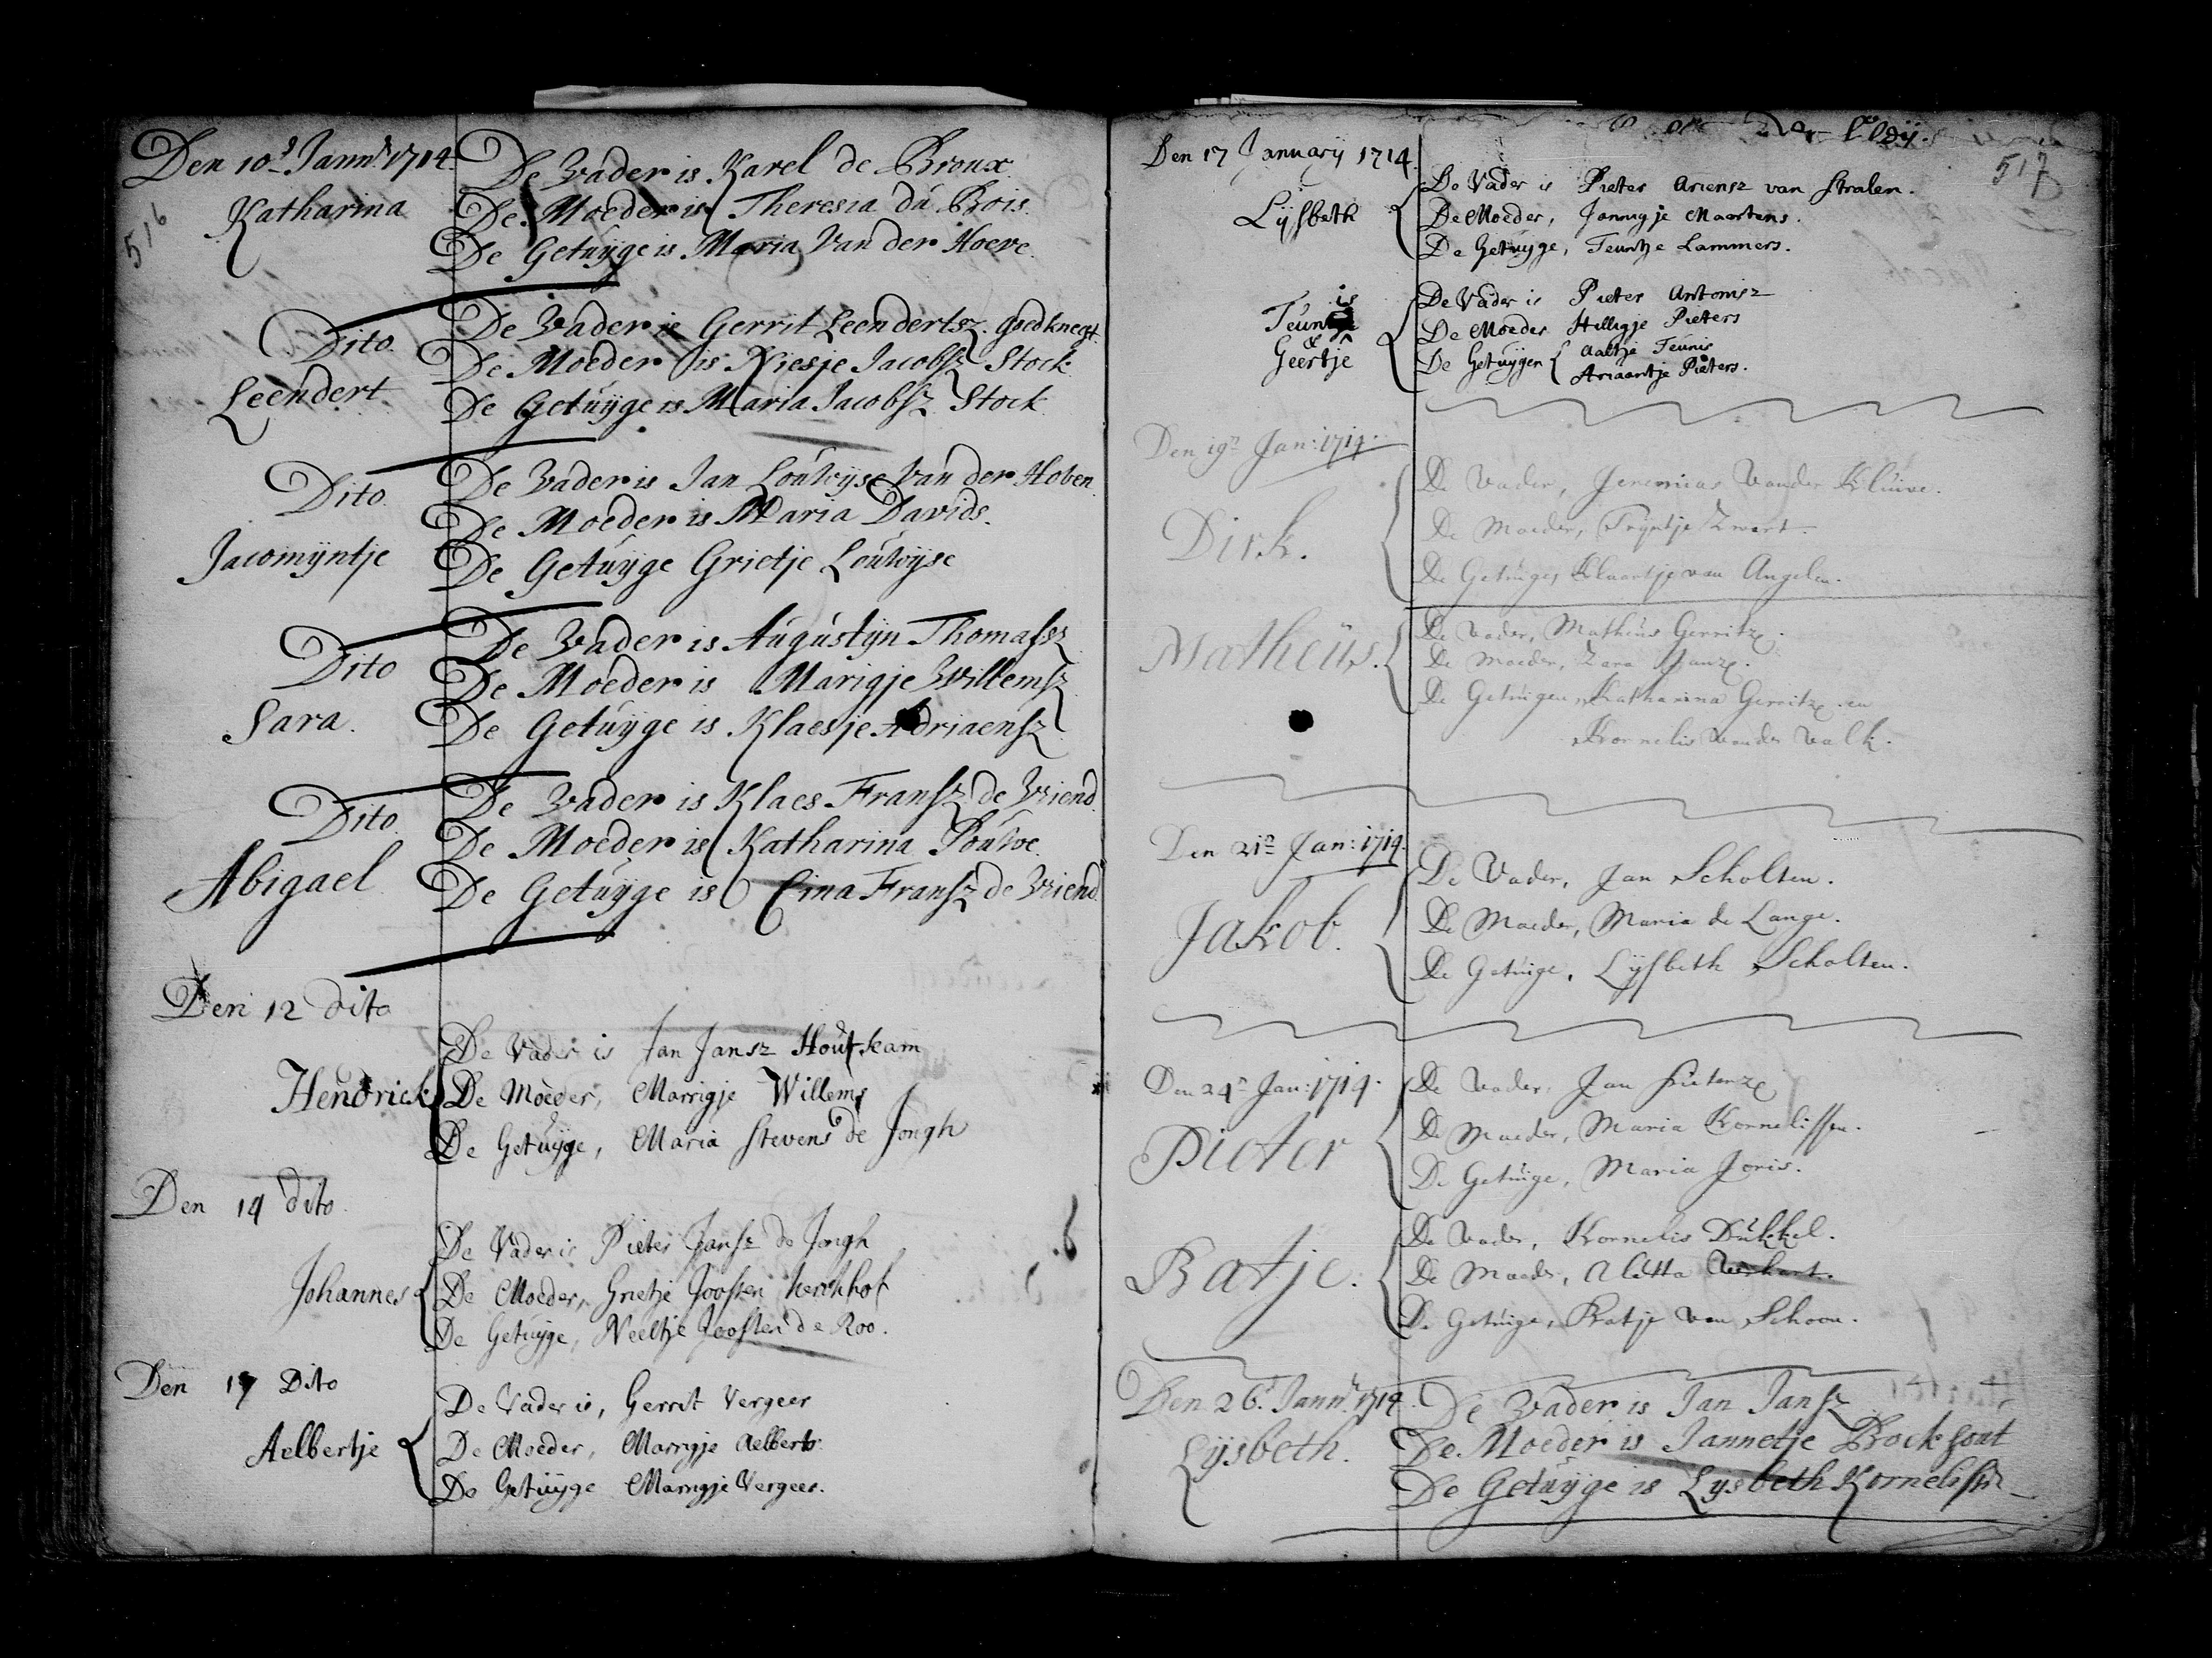 516
Den 10e Jannr 1714
Katharina
De Vader is Karel de Broux
De Moeder is Theresia du Bois
De Getuyge is Maria Van der Hoeve
Dito
Leendert
De Vader is Gerrit Leendertsz. Goedknegt
De Moeder is Niesje Jacobsz Stock
De Getuyge is Maria Jacobsz Stock
Dito
Jacomyntje
De Vader is Jan Louwyse Van der Hoben
De Moeder is Maria Davids.
De Getuyge Grietje Louwyse
Dito
Sara.
De Vader is Augustyn Thomasz
De Moeder is Marigje Willemsz
De Getuyge is Klaesje Adriaensz
Dito
Abigael
De Vader is Klaes Fransz de Vriend
De Moeder is Katharina Pouwe
De Getuyge is Eina Fransz de Vriend
Den 12 dito
Hendrick
De Vader is Jan Jansz Houtkam
De Moeder, Marrigje Willems
De Getuyge, Maria Stevens de Jongh
Den 14 dito
Johannes
De Vader is Pieter Jansz de Jongh
De Moeder, Grietje Joosten kerckhof
De Getuyge, Neeltje Joosten de Roo.
Den 17 Dito
Aelbertje
De Vader is, Gerrit Vergeer
De Moeder, Marrigje Aelberts
De Getuyge Marrigje Vergeer.
517
Den 17 January 1714
Lysbeth
De Vader is Pieter Ariensz van Stralen.
De Moeder, Jannigje Maartens.
De Getuyge, Teuntje Lammers.
Teunis
& Geertje
De Vader is Pieter Antonisz
De Moeder Hilligje Pieters
De Getuygen Aaltje Teunis
Ariaantje Pieters.
Den 19n Jan: 1714.
Dirk.
De Vader, Jeremias Vander Kluive.
De Moeder, Tryntje Zwart.
De Getuige, Klaartje van Angelen.
Matheus.
De Vader, Matheus Gerritze.
De Moeder, Zara Janze.
De Getuigen, Katharina Gerritze. en
Kornelis Vander Valk.
Den 21n Jan: 1714.
Jakob.
De Vader, Jan Scholten.
De Moeder, Maria de Lange.
De Getuige, Lysbeth Scholten.
Den 24n Jan: 1714.
Pieter
De Vader, Jan Pieterze
De Moeder, Maria Kornelissen.
De Getuige, Maria Joris.
Batje.
De Vader, Kornelis Dukkel.
De Moeder, Aletta Verhart.
De Getuige, Batje van Schoon.
Den 26. Jannr 1714.
Lysbeth.
De Vader is Jan Jansz
De Moeder is Jannetje Brocksout
De Getuyge is Lysbeth Kornelisse